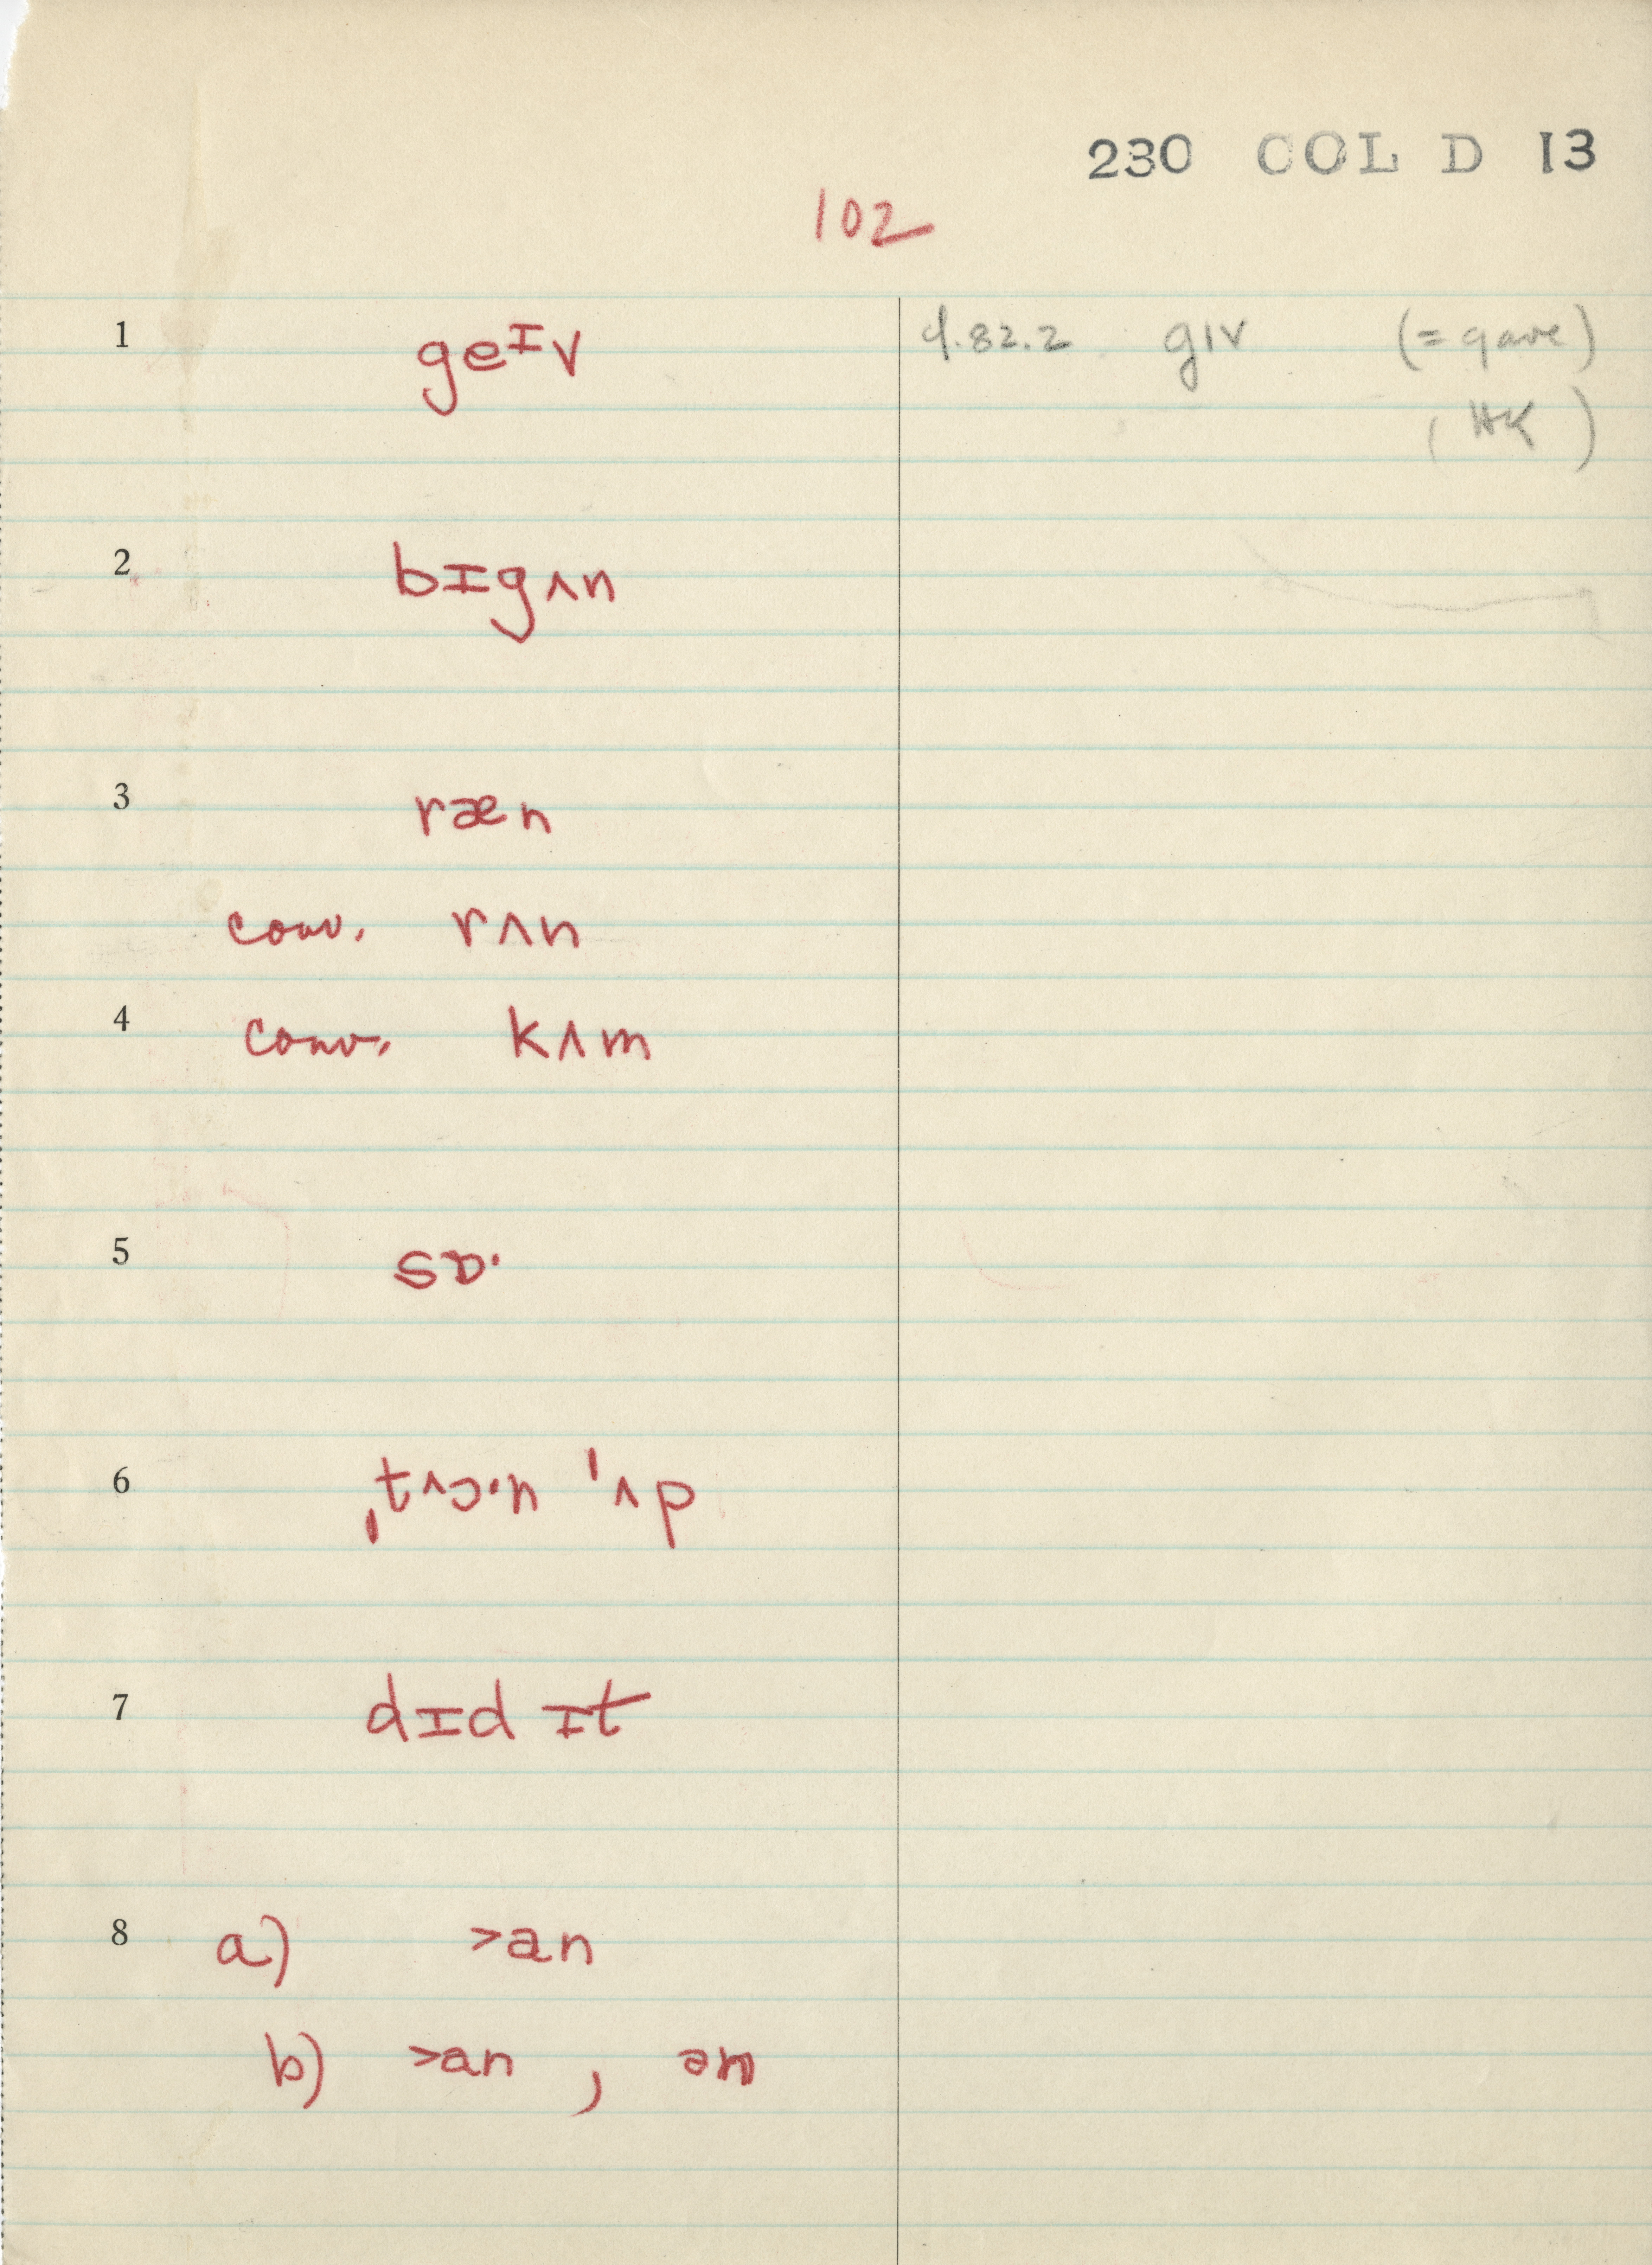 230 COL D 13
102
1 geᴵv 4.82.2 gɪv (= gave)
(HK)
2 bɪgʌn
3 ræn
conv. rʌn
4 conv. kʌm
5 sɒ·
7 dɪd ɪt
8 a) >an
b) >an , ən